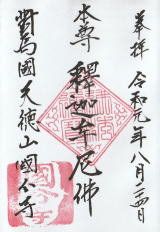 奉拝 令和元年八月二四日
本尊 釋迦牟尼佛
對馬國天徳山國分寺